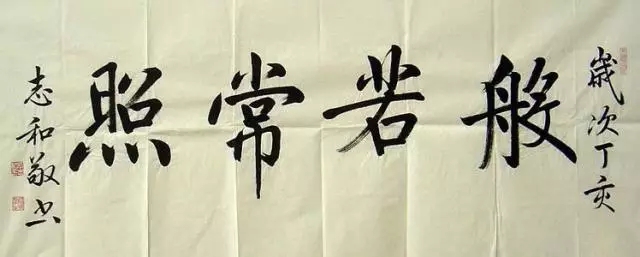 歲次丁亥
般若常照
志和敬书